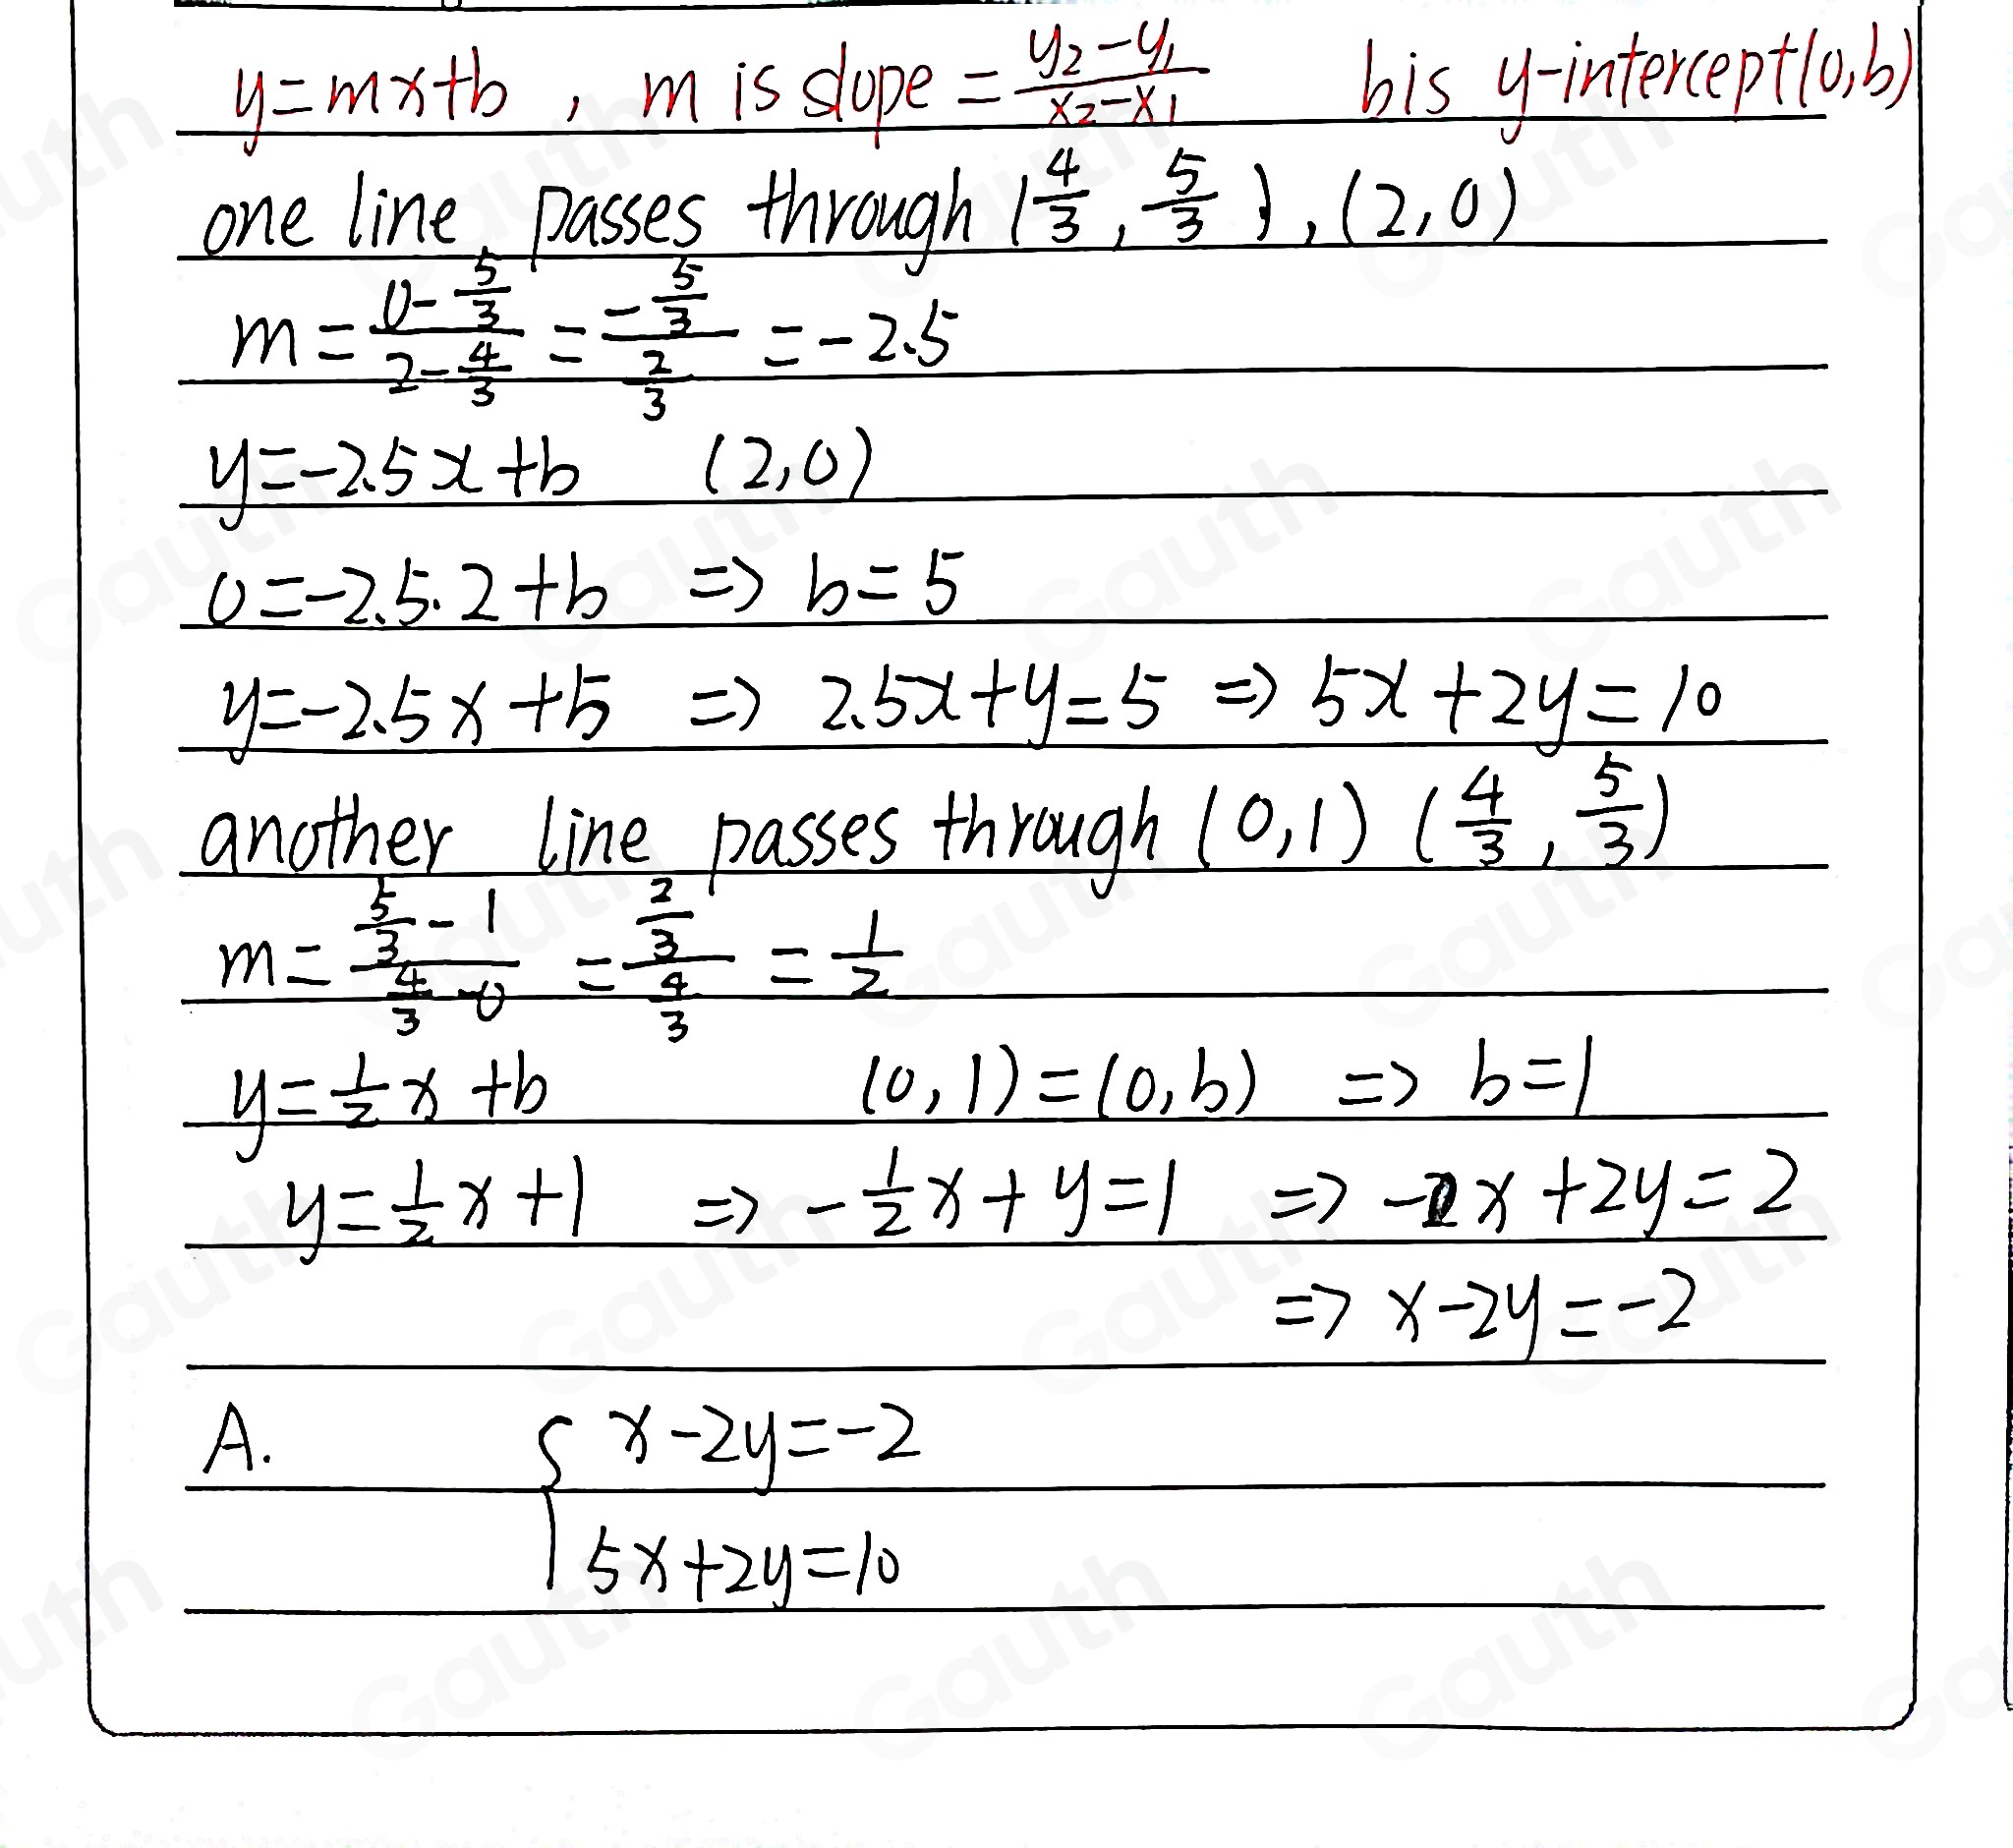 y=mx+b , m is slope = \frac{y_2-y_1}{x_2-x_1} b is y-intercept(0,b)
one line passes through (\frac{4}{3}, \frac{5}{3}), (2,0)
m = \frac{0-\frac{5}{3}}{2-\frac{4}{3}} = \frac{-\frac{5}{3}}{\frac{2}{3}} = -2.5
y=-2.5x+b (2,0)
0=-2.5·2+b => b=5
y=-2.5x+5 => 2.5x+y=5 => 5x+2y=10
another line passes through (0,1) (\frac{4}{3}, \frac{5}{3})
m = \frac{\frac{5}{3}-1}{\frac{4}{3}-0} = \frac{\frac{2}{3}}{\frac{4}{3}} = \frac{1}{2}
y=\frac{1}{2}x+b (0,1)=(0,b) => b=1
y=\frac{1}{2}x+1 => -\frac{1}{2}x+y=1 => -x+2y=2
=> x-2y=-2
A. { x-2y=-2
5x+2y=10
Gauth